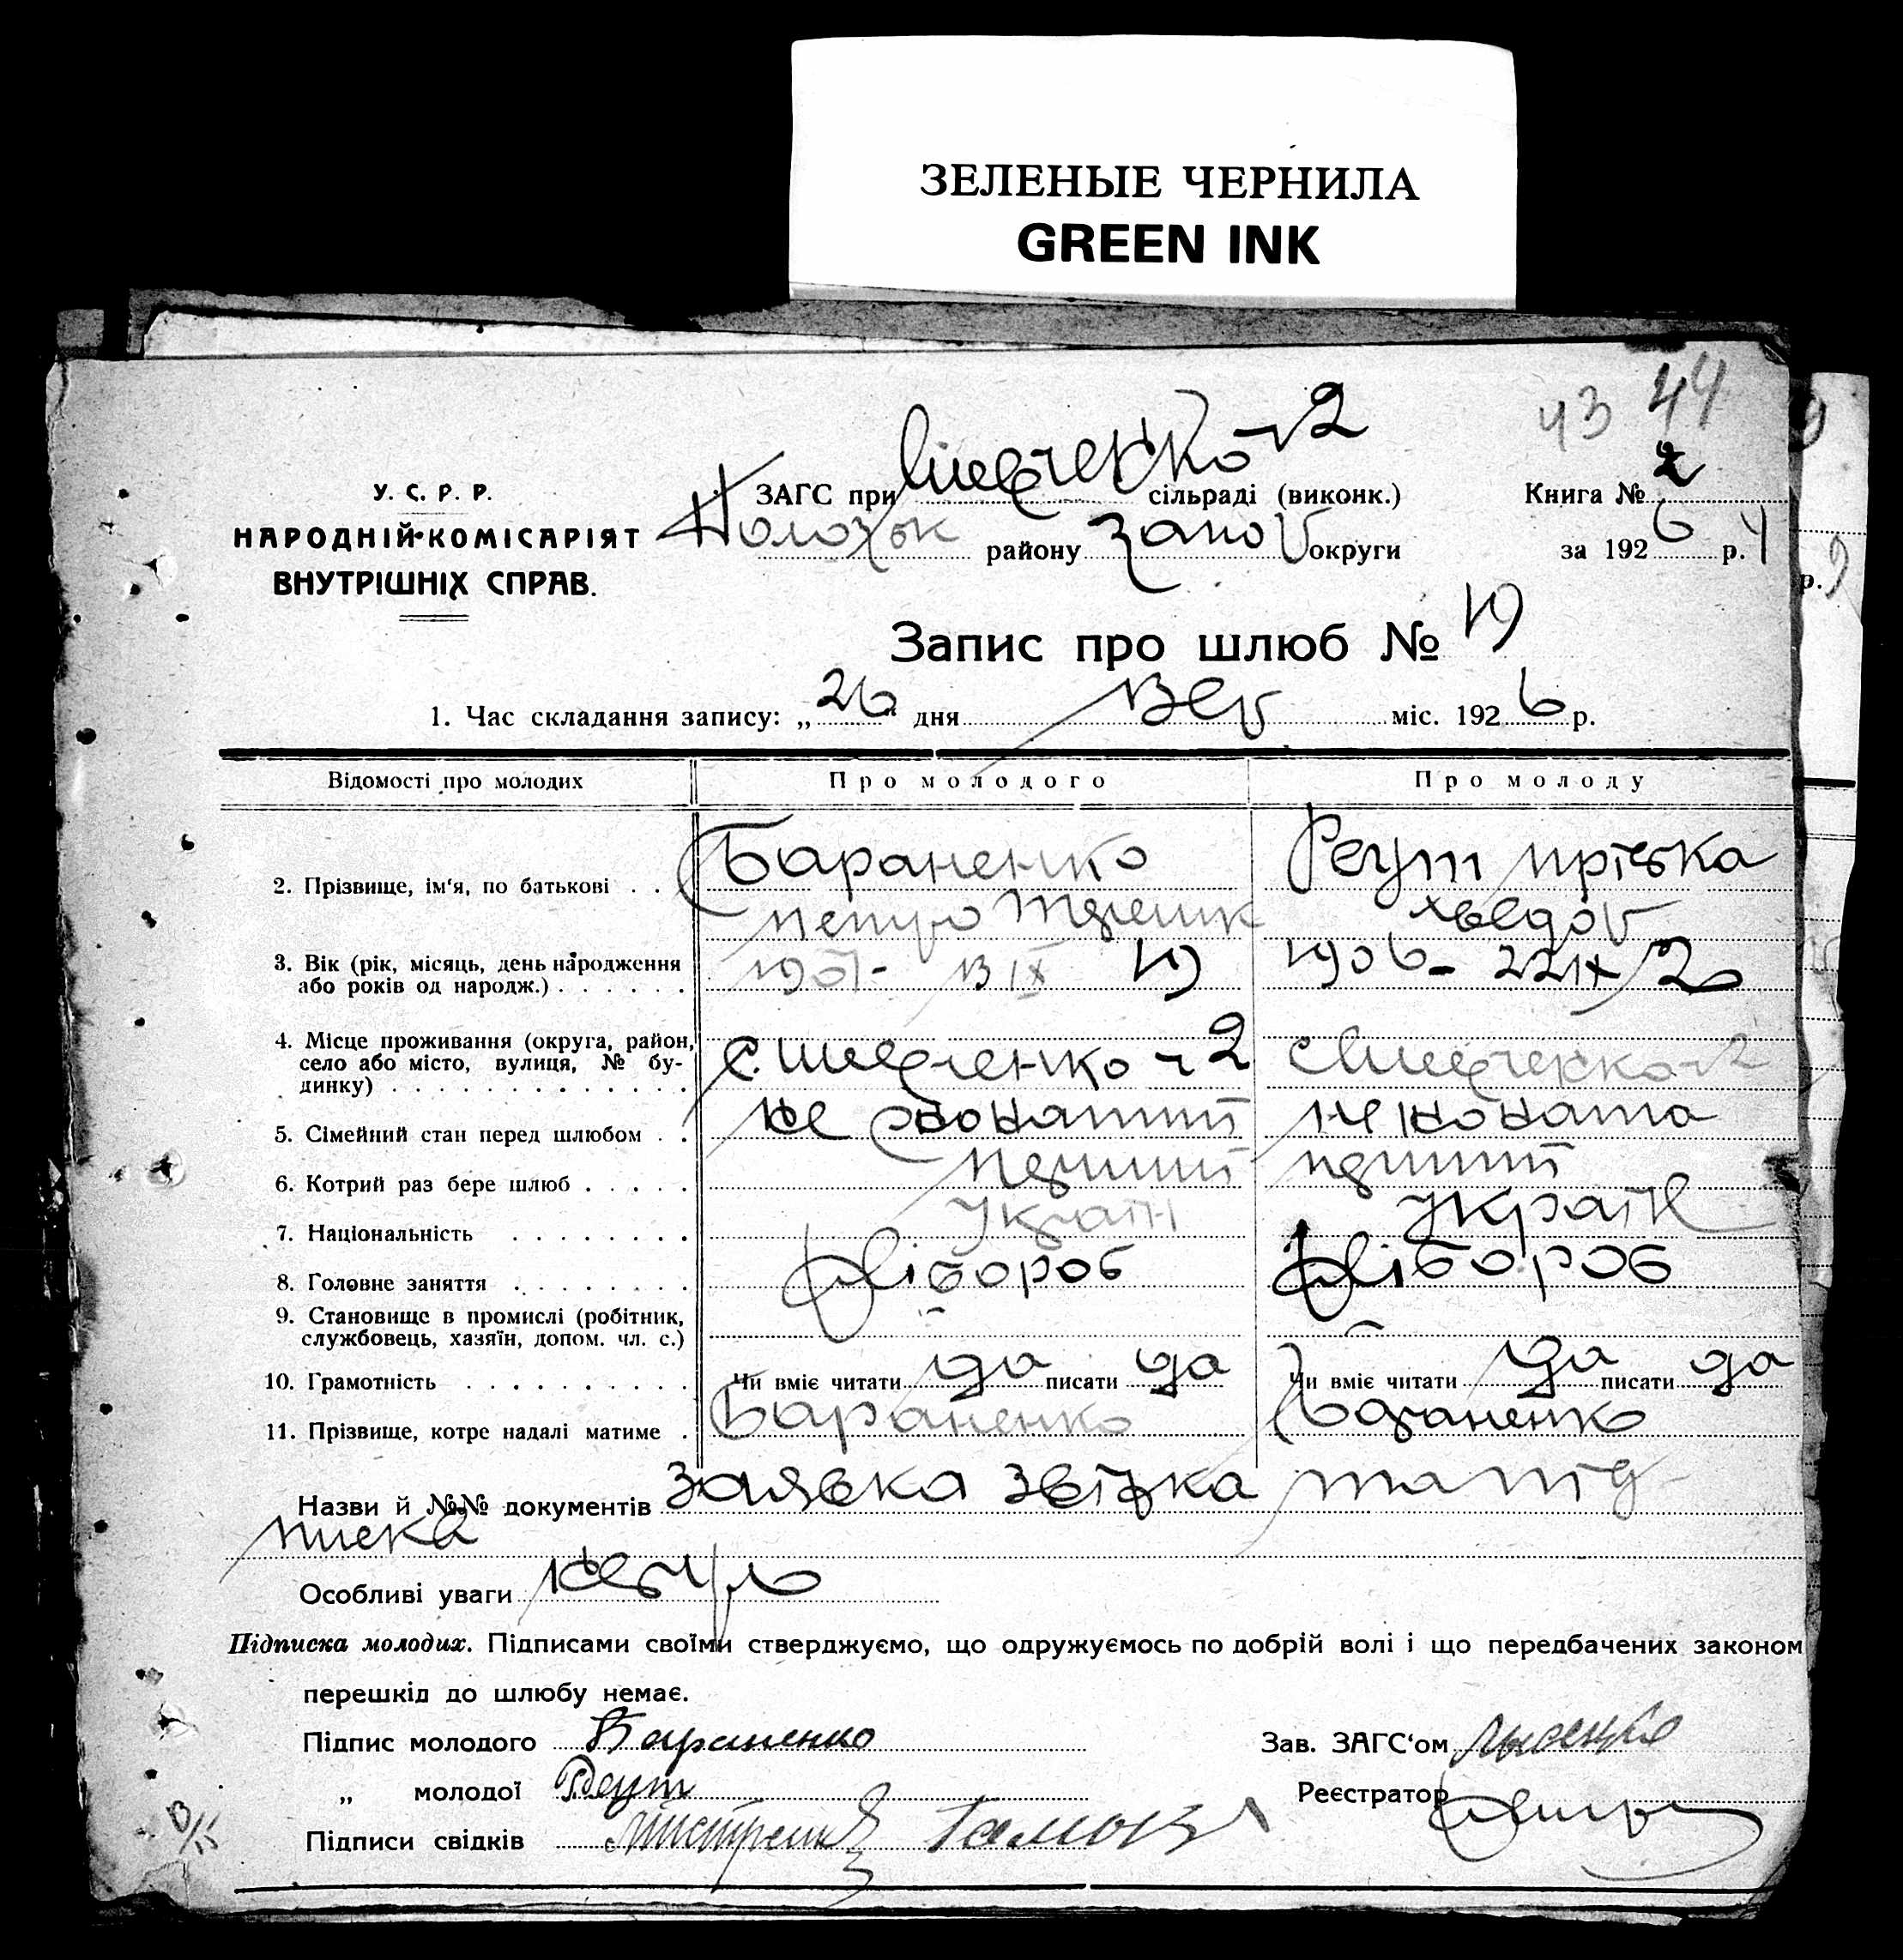 ЗЕЛЕНЫЕ ЧЕРНИЛА
GREEN INK
43 44
У. С. Р. Р.
НАРОДНІЙ КОМІСАРІЯТ
ВНУТРІШНІХ СПРАВ.
ЗАГС при Шевченко 2 сільраді (виконк.)
району Запо округи
Книга № 2
за 1926 р.
Запис про шлюб № 19
1. Час складання запису: „26“ дня Вер міс. 1926 р.
Відомості про молодих Про молодого Про молоду
2. Прізвище, ім'я, по батькові . . Бараненко Реут
Петро
3. Вік (рік, місяць, день народження
або років од народж.) . . . . . . 19 1906 - 22 IX 20
4. Місце проживання (округа, район,
село або місто, вулиця, № бу-
динку) . . . . . . . . . . . . . с. Шевченко 2 с Шевченко 2
5. Сімейний стан перед шлюбом . . не жонатий не жоната
6. Котрий раз бере шлюб . . . . . перший перший
7. Національність . . . . . . . . Україн Україн
8. Головне заняття . . . . . . . . хлібороб хлібороб
9. Становище в промислі (робітник,
службовець, хазяїн, допом. чл. с.) — —
10. Грамотність . . . . . . . . . . Чи вміє читати да писати да Чи вміє читати да писати да
11. Прізвище, котре надалі матиме . Бараненко Бараненко
Назви й №№ документів заявка звістка та під-
писка
Особливі уваги
Підписка молодих. Підписами своїми стверджуємо, що одружуємось по добрій волі і що передбачених законом
перешкід до шлюбу немає.
Підпис молодого Бараненко
„ молодої Реут
Підписи свідків
Зав. ЗАГС'ом Лысенко
Реєстратор